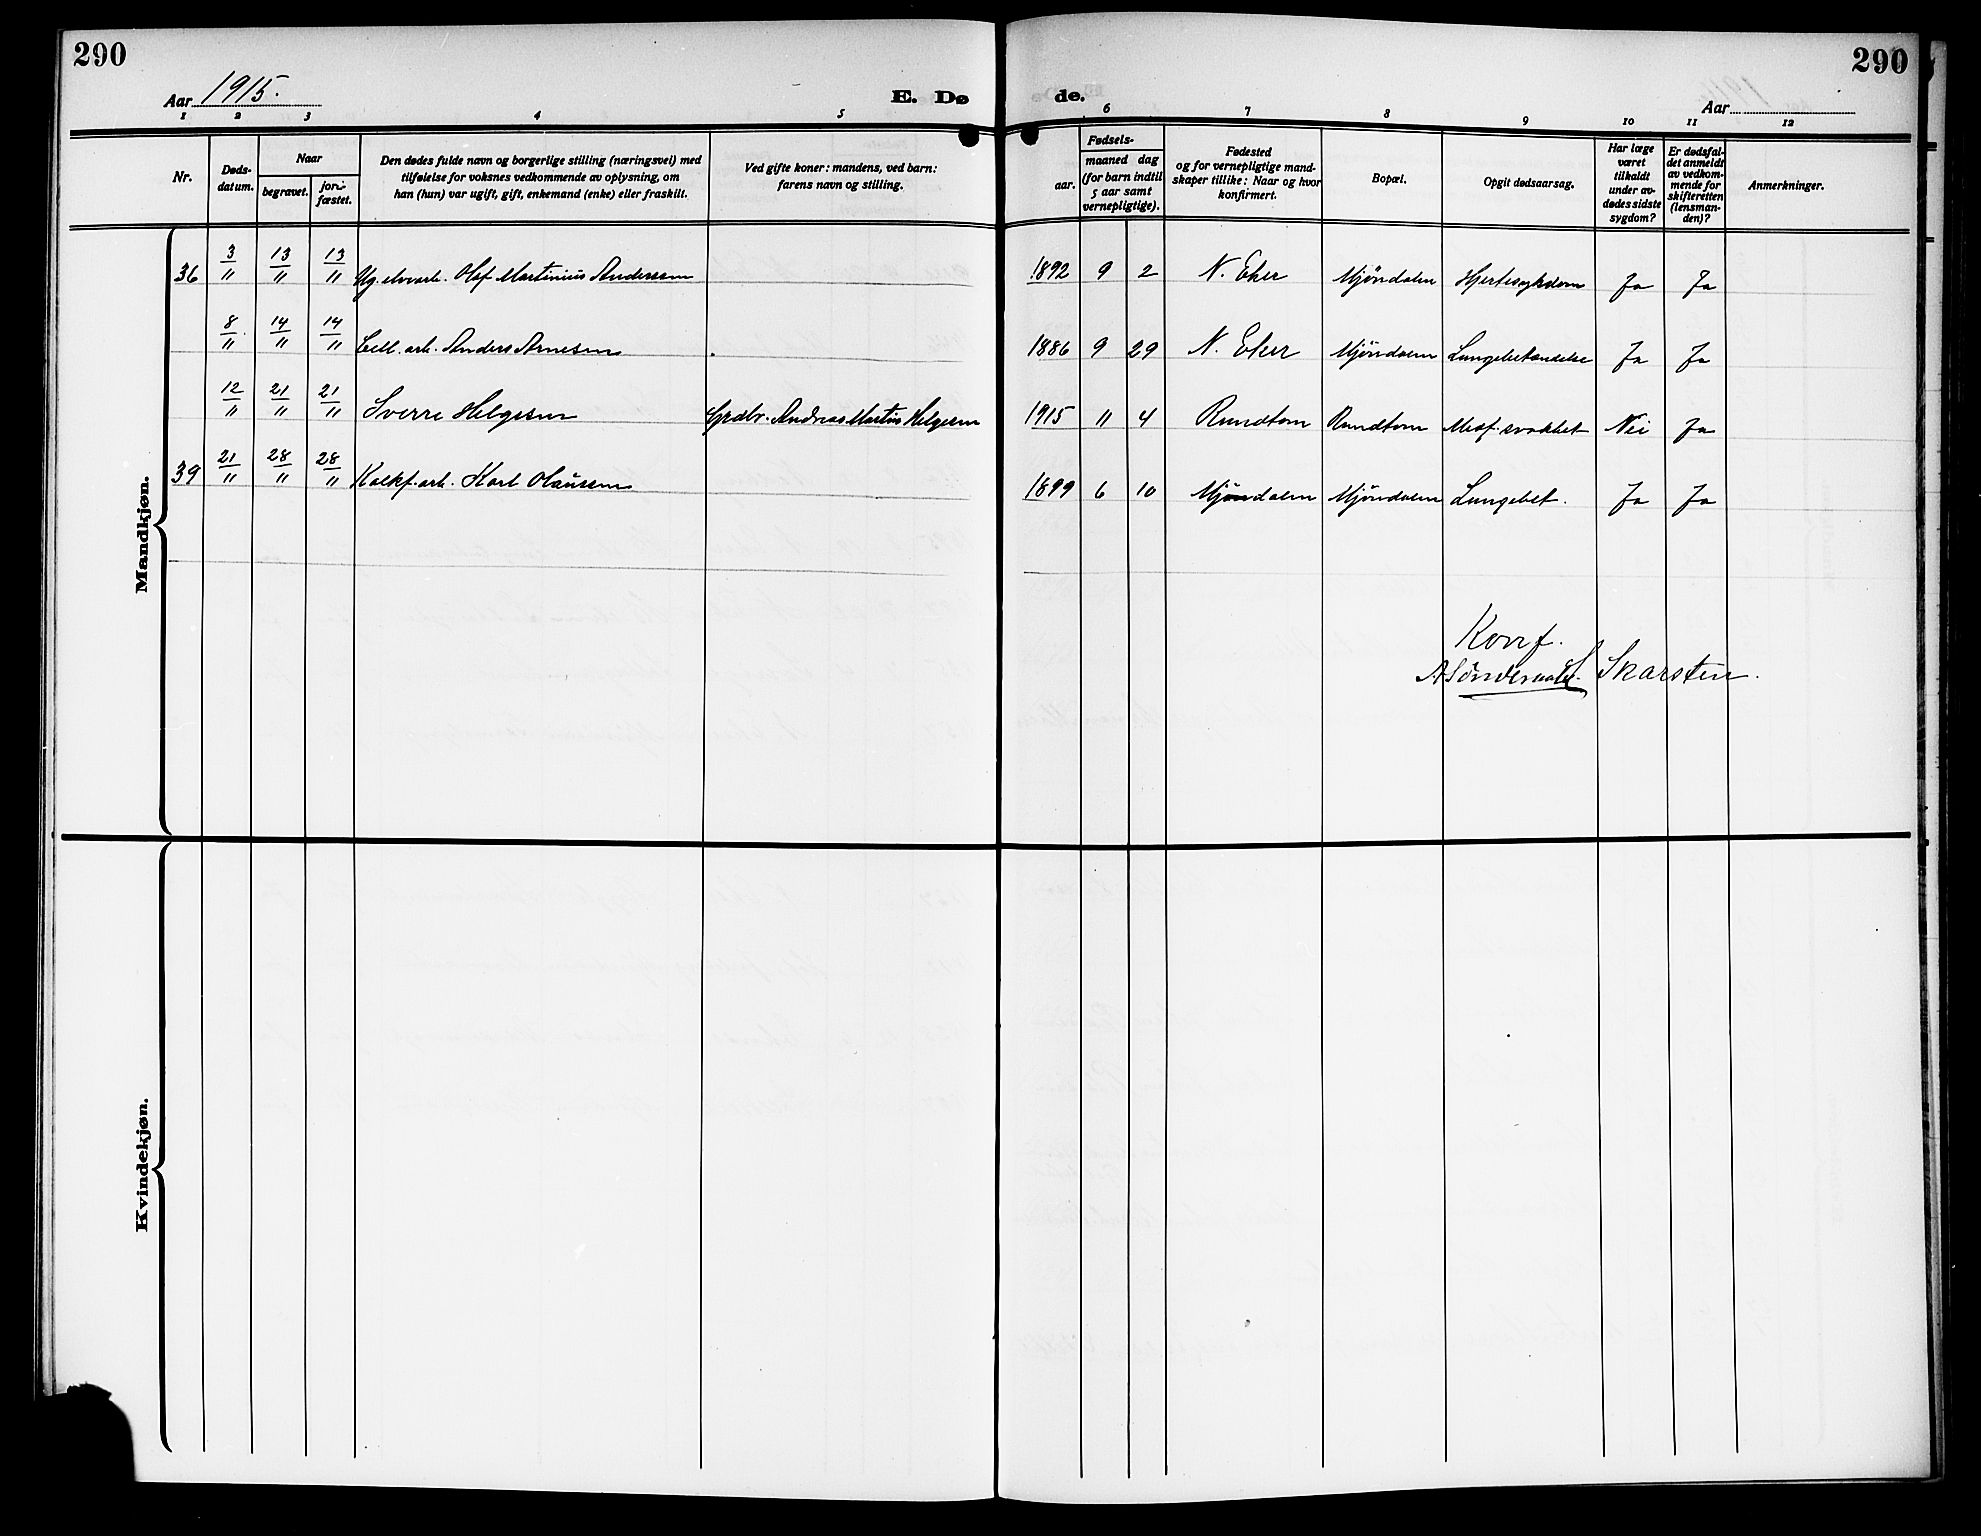 290
290
Aar 1915.
E. Dø
de.
Aar
1 2 3 4 5
6 7 8 9 10 11 12
Nr.
Døds-
datum.
Naar
begravet.
jord-
fæstet.
Den dødes fulde navn og borgerlige stilling (næringsvei) med
tilføielse for voksnes vedkommende av oplysning, om
han (hun) var ugift, gift, enkemand (enke) eller fraskilt.
Ved gifte koner: mandens, ved barn:
farens navn og stilling.
Fødsels-
aar.
maaned dag
(for barn indtil
5 aar samt
vernepligtige).
Fødested
og for vernepligtige mand-
skaper tillike: Naar og hvor
konfirmert.
Bopæl.
Opgit dødsaarsag.
Har læge
været
tilkaldt
under av-
dødes sidste
sygdom?
Er dødsfal-
det anmeldt
av vedkom-
mende for
skifteretten
(lensman-
den)?
Anmerkninger.
Mandkjøn.
36 3/11 13/11 13/11 Ug. elvearb. Olaf Martinius Anderssen 1892 9 2 N. Eker Mjöndalen Hjertesykdom Ja Ja
8/11 14/11 14/11 Cell. arb. Anders Arnesen 1886 9 29 N. Eker Mjöndalen Lungebetændelse Ja Ja
12/11 21/11 21/11 Sverre Helgesen Andreas Martin Helgesen 1915 11 4 Rundtom Rundtom Medf. svakhet Nei Ja
39 21/11 28/11 28/11 Kalkf. arb. Karl Olaussen 1899 6 10 Mjöndalen Mjöndalen Lungebet. Ja Ja
Konf.
Skarsten.
Kvindekjøn.